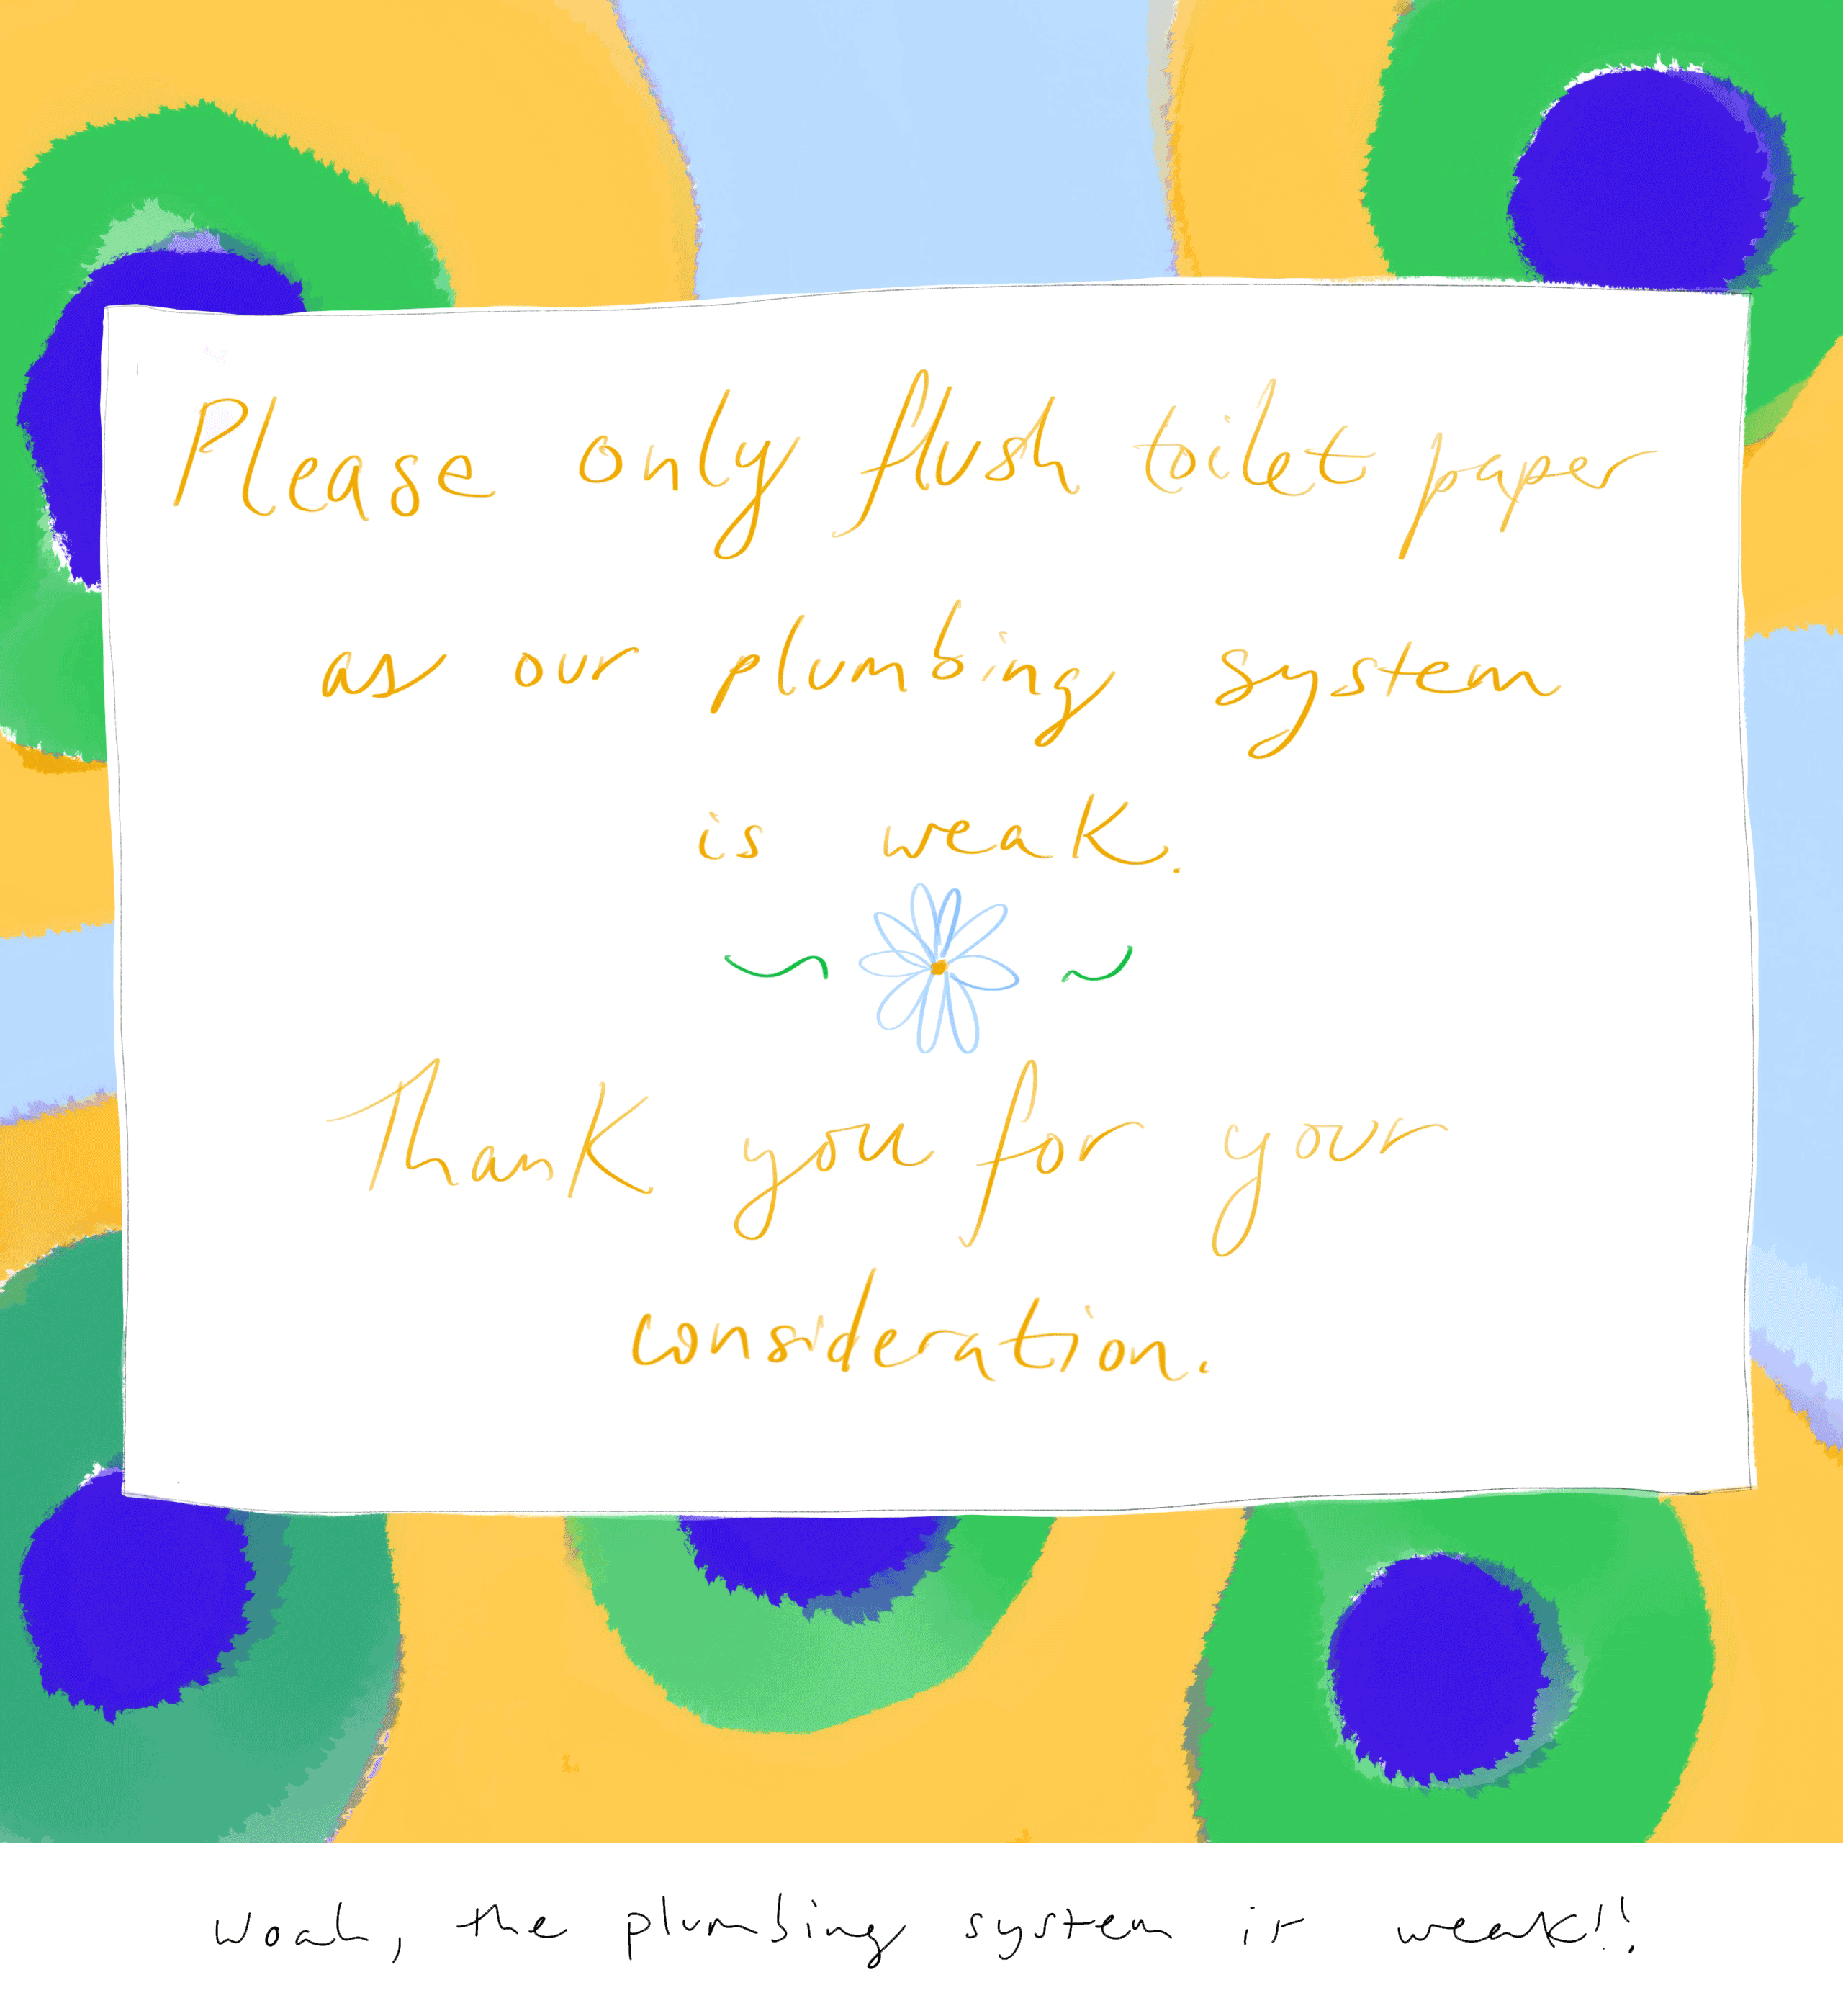 Please only flush toilet paper
as our plumbing system
is weak.
Thank you for your
consideration.
Woah, the plumbing system is weak!!